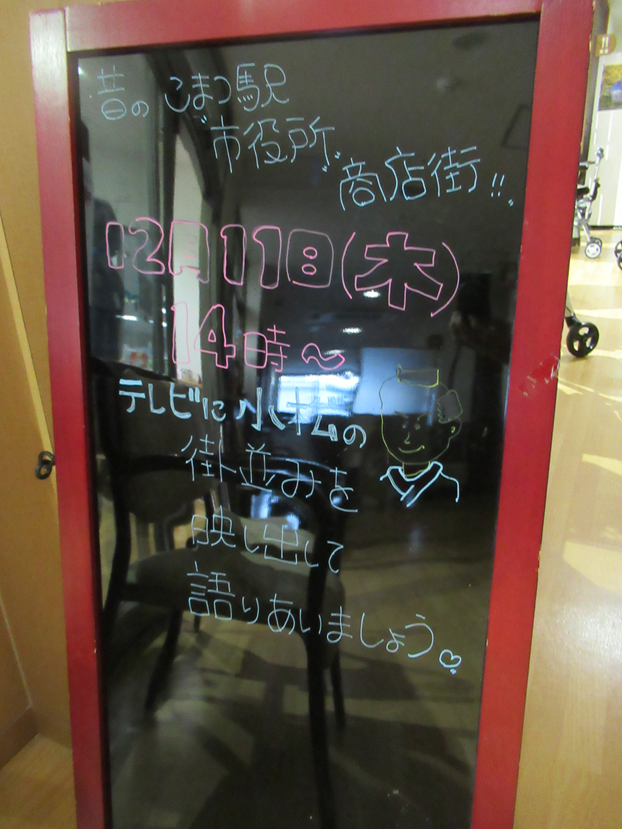 昔の こまつ駅
"市役所"
商店街!!
12月11日(木)
14時～
テレビに小松の
街並みを
映し出して
語りあいましょう。